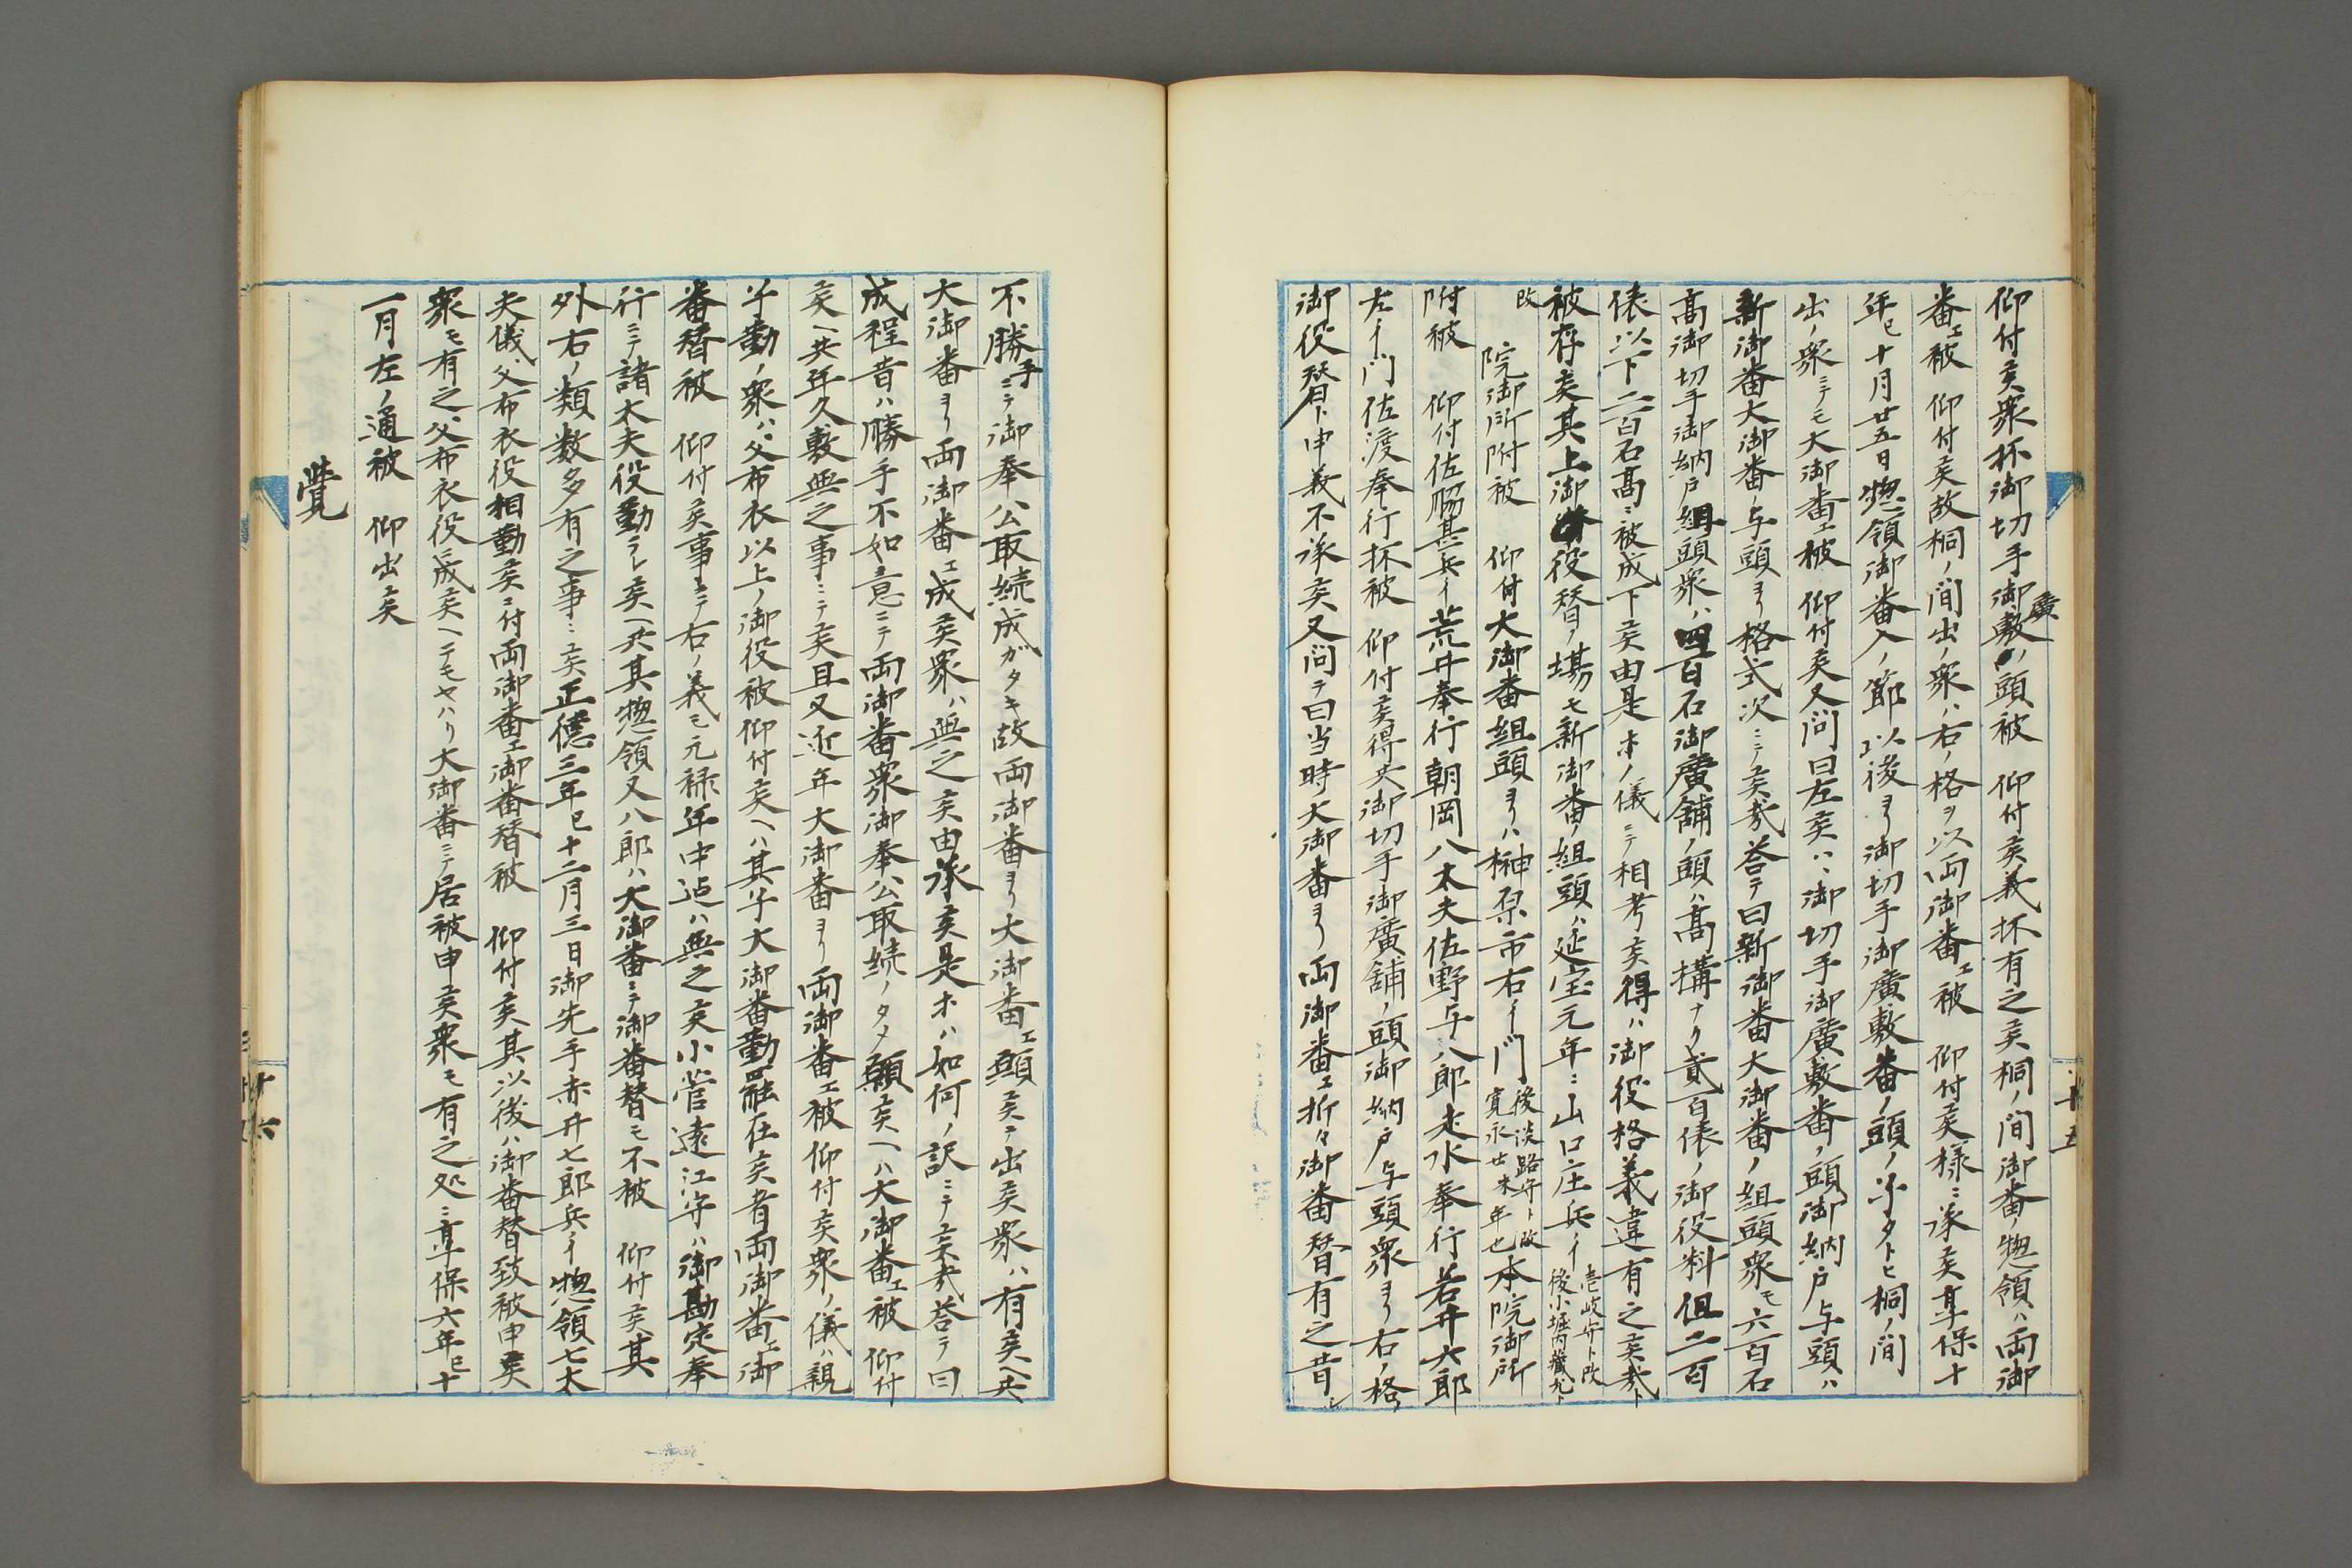 仰付矦衆抔御切手御廣敷ノ頭被　仰付矦義抔有之矦桐ノ間御番ノ惣領ハ両御
番エ被　仰付矦故桐ノ間出ノ衆ハ右ノ格ヲ以両御番エ被　仰付矦様ニ承矦享保十
年巳十月廿五日惣領御番入ノ節以後ヨリ御切手御廣敷番ノ頭ノ子タトヒ桐ノ間
出ノ衆ニテモ大御番エ被　仰付矦又問曰左矦ハヽ御切手御廣敷番ノ頭御納戸与頭ハ
新御番大御番ノ与頭ヨリ格式次ニテ矦哉答テ曰新御番大御番ノ組頭衆モ六百石
高御切手御納戸組頭衆ハ四百石御廣舗ノ頭ハ高構ナク貳百俵ノ御役料但二百
俵以下二百石高ニ被成下矦由是ホノ儀ニテ相考矦得ハ御役格義違有之矦哉ト
被存矦其上御役替ノ場モ新御番ノ組頭ハ延宝元年ニ山口庄兵ヘ壱岐守ト改後小堀内蔵允ト
改　院御所附被　仰付大御番組頭ヨリハ榊原市右ヘ門後淡路守ト改寛永廿未年也本院御所
附被　仰付佐脇甚兵ヘ荒井奉行朝岡八太夫佐野与八郎走水奉行若井六郎
左ヘ門佐渡奉行抔被　仰付矦得共御切手御廣舗ノ頭御納戸与頭衆ヨリ右ノ格ノ
御役替ト申義不承矦又問テ曰当時大御番ヨリ両御番エ折々御番替有之昔シ
不勝手ニテ御奉公取続成ガタキ故両御番ヨリ大御番エ願矦テ出矦衆ハ有矦ヘ共
大御番ヨリ両御番エ成矦衆ハ無之矦由承矦是ホハ如何ノ訳ニテ矦哉答テ曰
成程昔ハ勝手不如意ニテ両御番衆御奉公取続ノタメ願矦ヘハ大御番エ被　仰付
矦ヘ共年久敷無之事ニテ矦且又近年大御番ヨリ両御番エ被仰付矦衆ノ儀ハ親
子勤ノ衆ハ父布衣以上ノ御役被仰付矦ヘハ其子大御番勤罷在矦者両御番エ御
番替被　仰付矦事ニテ右ノ義モ元禄年中迠ハ無之矦小菅遠江守ハ御勘定奉
行ニテ諸太夫役勤ラレ矦ヘ共其惣領又八郎ハ大御番ニテ御番替モ不被　仰付矦其
外右ノ類数多有之事ニ矦正徳三年巳十二月三日御先手赤井七郎兵ヘ惣領七太
夫儀父布衣役相勤矦ニ付両御番エ御番替被　仰付矦其以後ハ御番替致被申矦
衆モ有之父布衣役ニ成矦ヘテモヤハリ大御番ニテ居被申矦衆モ有之処ニ享保六年巳十
一月左ノ通被　仰出矦
覺